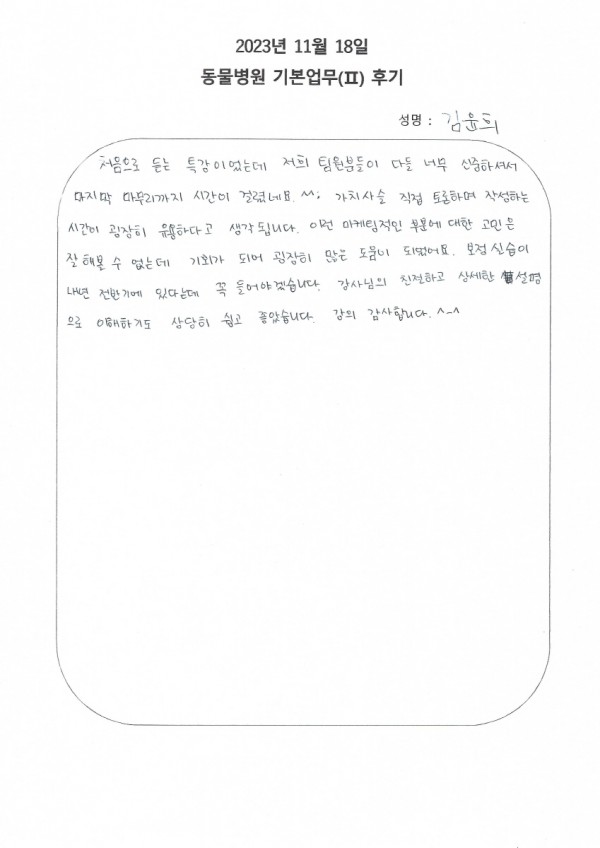 2023년 11월 18일
동물병원 기본업무(Ⅱ) 후기
성명 : 김윤희
처음으로 듣는 특강이었는데 저희 팀원분들이 다들 너무 신중하셔서
마지막 마무리까지 시간이 걸렸네요. ^^; 가치사슬 직접 토론하며 작성하는
시간이 굉장히 유용하다고 생각됩니다. 이런 마케팅적인 부분에 대한 고민은
잘 해볼 수 없는데 기회가 되어 굉장히 많은 도움이 되었어요. 보점실습이
내년 전반기에 있다는데 꼭 들어야겠습니다. 강사님의 친절하고 상세한 설명
으로 이해하기도 상당히 쉽고 좋았습니다. 강의 감사합니다. ^~^